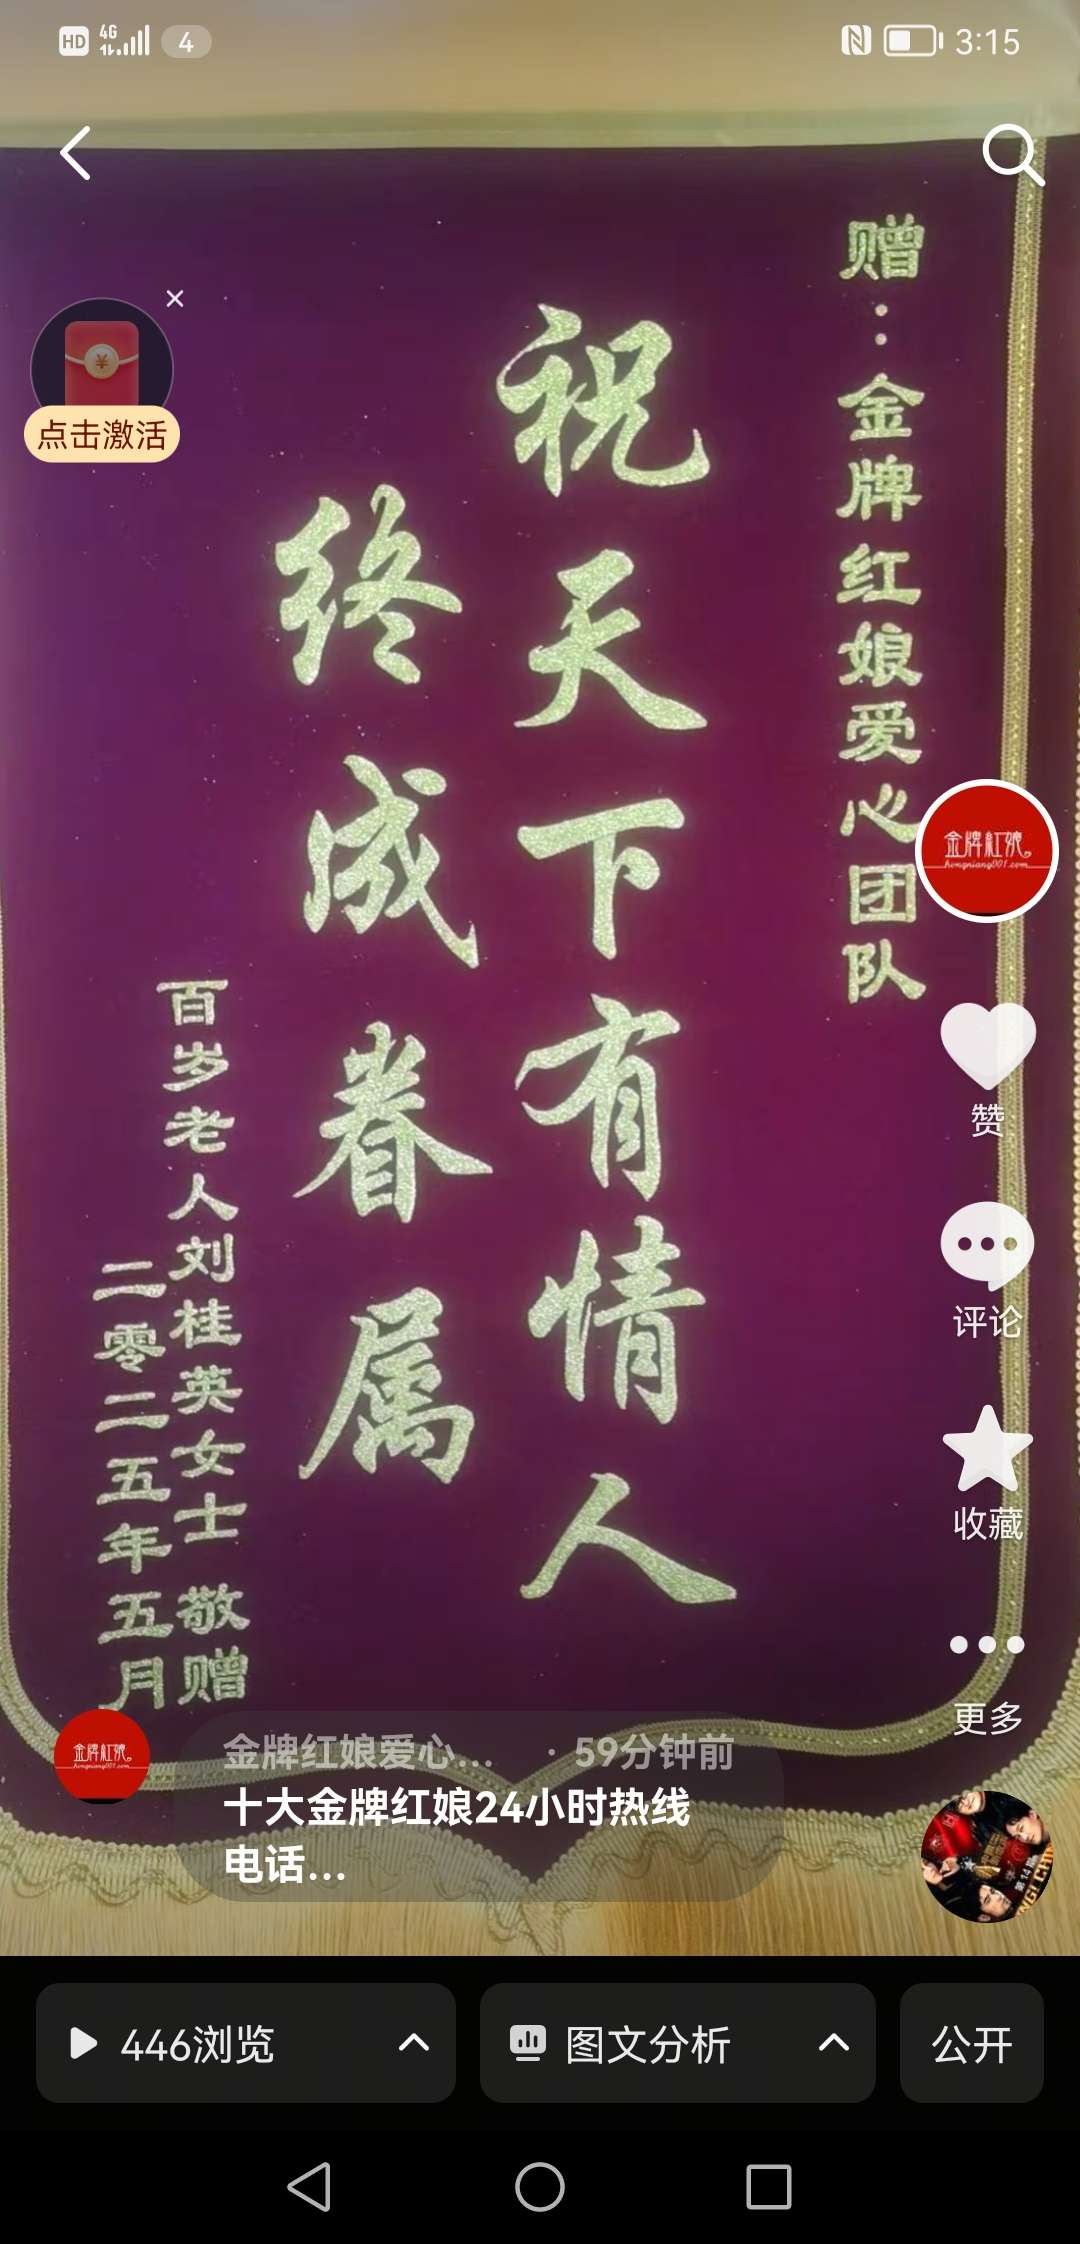 HD 4G 4 3:15
赠：金牌红娘爱心团队
祝天下有情人
终成眷属
百岁老人刘桂英女士 敬赠
二零二五年五月
点击激活
金牌紅娘
hongniang001.com
赞
评论
收藏
更多
金牌紅娘
hongniang001.com
金牌红娘爱心... · 59分钟前
十大金牌红娘24小时热线
电话...
446浏览
图文分析
公开